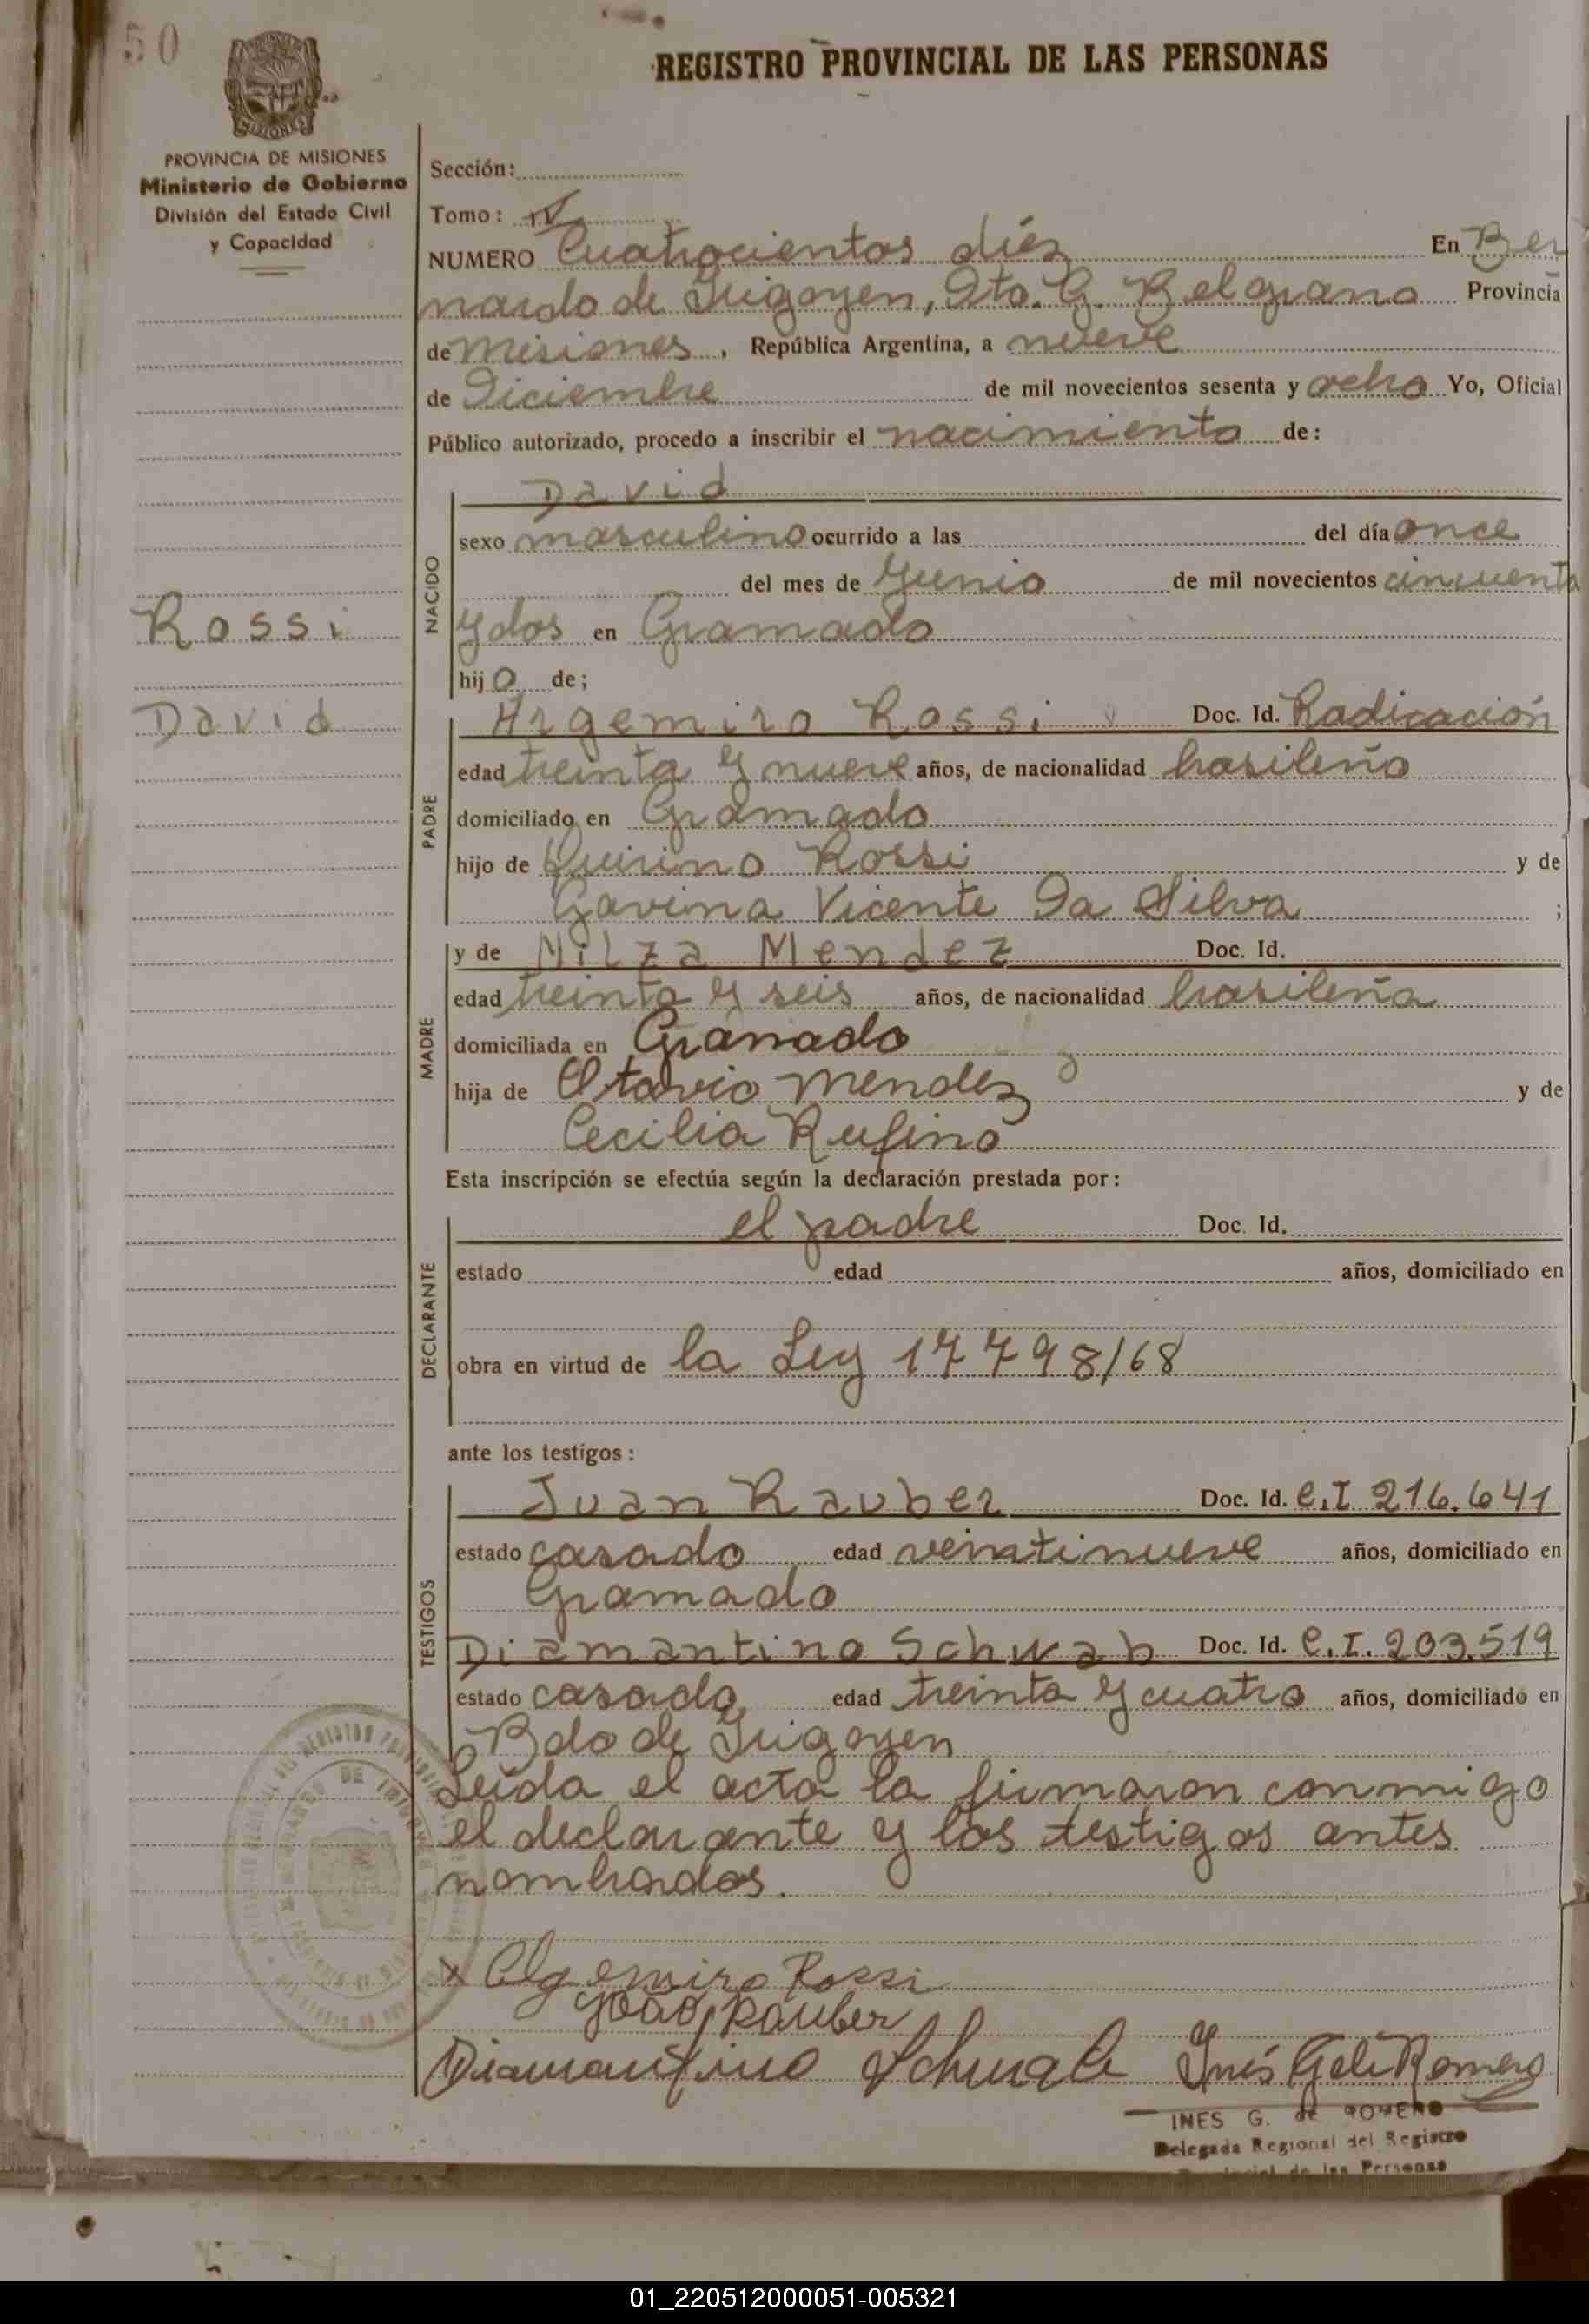 50
REGISTRO PROVINCIAL DE LAS PERSONAS
MISIONES
PROVINCIA DE MISIONES
Ministerio de Gobierno
División del Estado Civil
y Capacidad
Sección:
Tomo: IV
NUMERO Cuatrocientos diéz En Ber
nardo de Irigoyen, Dto. G. Belgrano Provincia
de Misiones, República Argentina, a nueve
de Diciembre de mil novecientos sesenta y ocho Yo, Oficial
Público autorizado, procedo a inscribir el nacimiento de:
Rossi
David
NACIDO
David
sexo masculino ocurrido a las del día once
del mes de Junio de mil novecientos cincuenta
y dos en Gramado
hijo de;
PADRE
Argemiro Rossi Doc. Id. Radicación
edad treinta y nueve años, de nacionalidad brasileño
domiciliado en Gramado
hijo de Quirino Rossi y de
Gavina Vicente Da Silva ;
MADRE
y de Nilza Mendez Doc. Id.
edad treinta y seis años, de nacionalidad brasileña
domiciliada en Granado
hija de Otavio Mendez y de
Cecilia Rufino
Esta inscripción se efectúa según la declaración prestada por:
DECLARANTE
el padre Doc. Id.
estado edad años, domiciliado en
obra en virtud de la Ley 17798/68
ante los testigos:
TESTIGOS
Juan Rauber Doc. Id. C.I 216.641
estado casado edad veintinueve años, domiciliado en
Gramado
Diamantino Schwab Doc. Id. C.I. 203.519
estado casado edad treinta y cuatro años, domiciliado en
Bdo de Irigoyen
Leída el acta la firmaron conmigo
el declarante y los testigos antes
nombrados.
x Algemiro Rossi
João Rauber
Diamantino Schwab Inés G. de Romero
INES G. de ROMERO
Delegada Regional del Registro
Provincial de las Personas
01_220512000051-005321